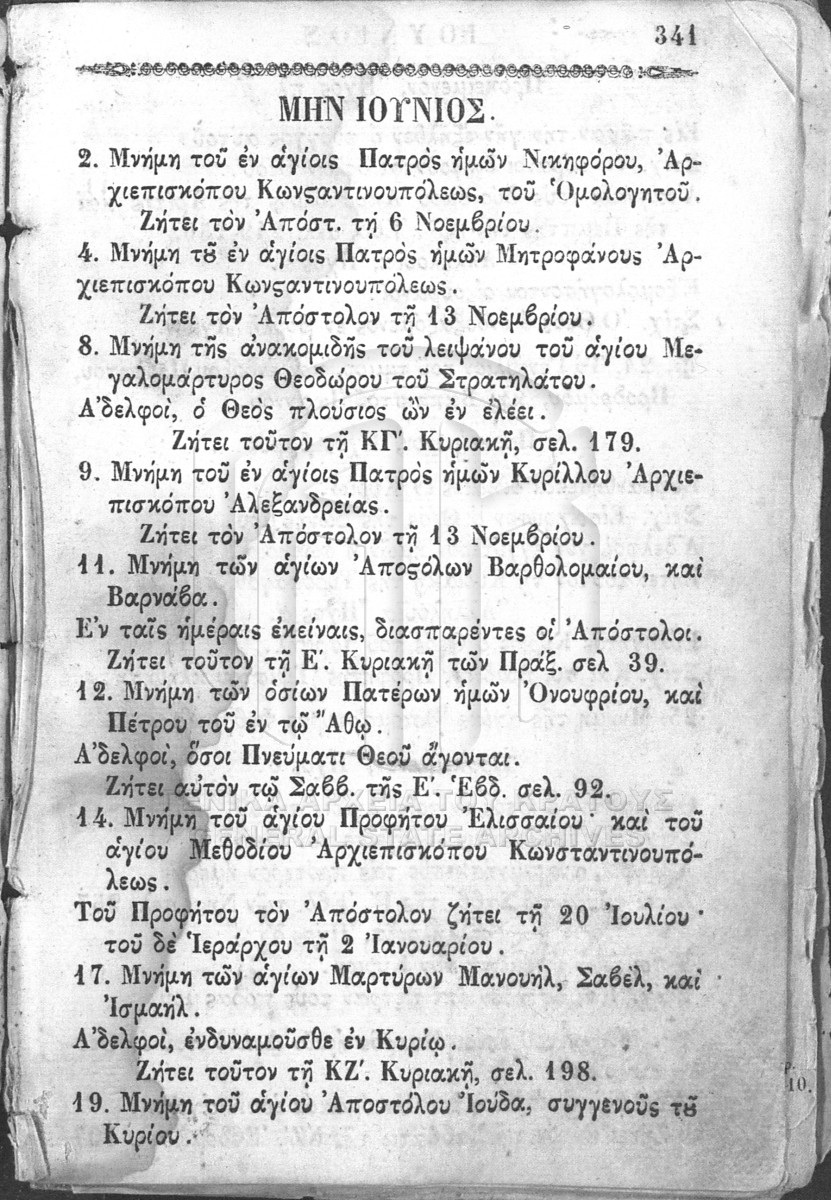 341
ΜΗΝ ΙΟΥΝΙΟΣ.
2. Μνήμη τοῦ ἐν ἁγίοις Πατρὸς ἡμῶν Νικηφόρου, Ἀρ-
χιεπισκόπου Κωνϛαντινουπόλεως, τοῦ Ὁμολογητοῦ.
Ζήτει τὸν Ἀπόστ. τῇ 6 Νοεμβρίου.
4. Μνήμη τȣ͂ ἐν ἁγίοις Πατρὸς ἡμῶν Μητροφάνους Ἀρ-
χιεπισκόπου Κωνϛαντινουπόλεως.
Ζήτει τὸν Ἀπόστολον τῇ 13 Νοεμβρίου.
8. Μνήμη τῆς ἀνακομιδῆς τοῦ λειψάνου τοῦ ἁγίου Με-
γαλομάρτυρος Θεοδώρου τοῦ Στρατηλάτου.
Ἀδελφοὶ, ὁ Θεὸς πλούσιος ὢν ἐν ἐλέει.
Ζήτει τοῦτον τῇ ΚΓ΄. Κυριακῇ, σελ. 179.
9. Μνήμη τοῦ ἐν ἁγίοις Πατρὸς ἡμῶν Κυρίλλου Ἀρχιε-
πισκόπου Ἀλεξανδρείας.
Ζήτει τὸν Ἀπόστολον τῇ 13 Νοεμβρίου.
11. Μνήμη τῶν ἁγίων Ἀποϛόλων Βαρθολομαίου, καὶ
Βαρνάβα.
Ἐν ταῖς ἡμέραις ἐκείναις, διασπαρέντες οἱ Ἀπόστολοι.
Ζήτει τοῦτον τῇ Ε΄. Κυριακῇ τῶν Πράξ. σελ 39.
12. Μνήμη τῶν ὁσίων Πατέρων ἡμῶν Ὀνουφρίου, καὶ
Πέτρου τοῦ ἐν τῷ Ἄθῳ.
Ἀδελφοὶ, ὅσοι Πνεύματι Θεοῦ ἄγονται.
Ζήτει αὐτὸν τῷ Σαββ. τῆς Ε΄. Ἑβδ. σελ. 92.
ΓΕΝΙΚΑ ΑΡΧΕΙΑ ΤΟΥ ΚΡΑΤΟΥΣ
14. Μνήμη τοῦ ἁγίου Προφήτου Ἐλισσαίου· καὶ τοῦ
GENERAL STATE ARCHIVES
ἁγίου Μεθοδίου Ἀρχιεπισκόπου Κωνσταντινουπό-
λεως.
Τοῦ Προφήτου τὸν Ἀπόστολον ζήτει τῇ 20 Ἰουλίου·
τοῦ δὲ Ἱεράρχου τῇ 2 Ἰανουαρίου.
17. Μνήμη τῶν ἁγίων Μαρτύρων Μανουὴλ, Σαβὲλ, καὶ
Ἰσμαήλ.
Ἀδελφοὶ, ἐνδυναμοῦσθε ἐν Κυρίῳ.
Ζήτει τοῦτον τῇ ΚΖ΄. Κυριακῇ, σελ. 198.
19. Μνήμη τοῦ ἁγίου Ἀποστόλου Ἰούδα, συγγενοῦς τȣ͂
Κυρίου.
10.